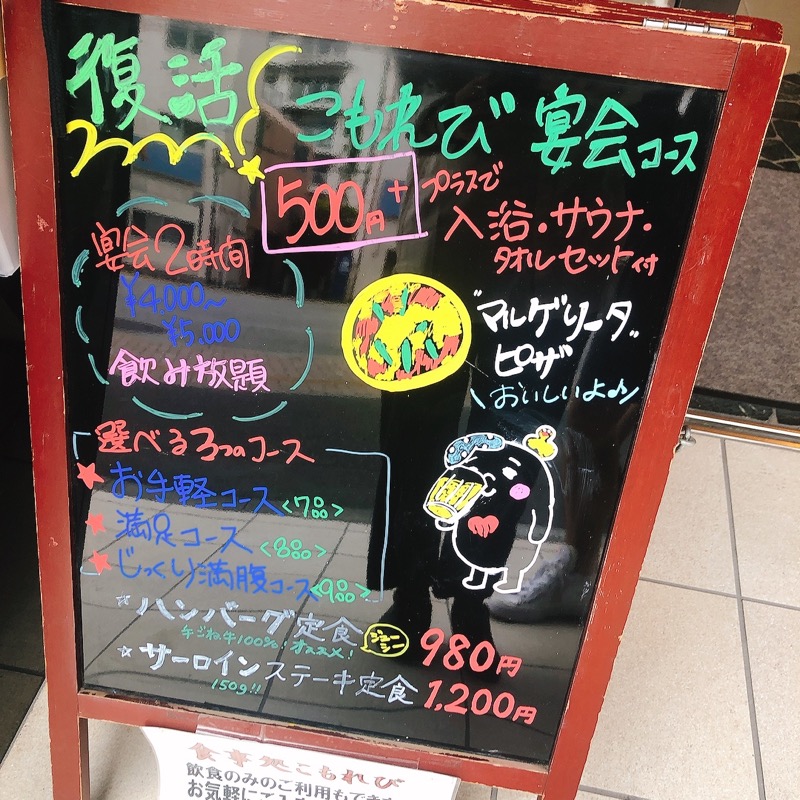 復活
こもれび 宴会コース
500円+ プラスで
入浴・サウナ・
タオルセット付
宴会2時間
¥4,000~
¥5,000
飲み放題
"マルゲリータ"
ピザ
\おいしいよ♪/
選べる3つのコース
★お手軽コース<7品>
★満足コース<8品>
★じっくり満腹コース<9品>
☆ハンバーグ定食 ジューシー 980円
手ごね牛100%!オススメ!
☆サーロインステーキ定食 1,200円
150g!!
食事処こもれび
飲食のみのご利用もでき
お気軽に